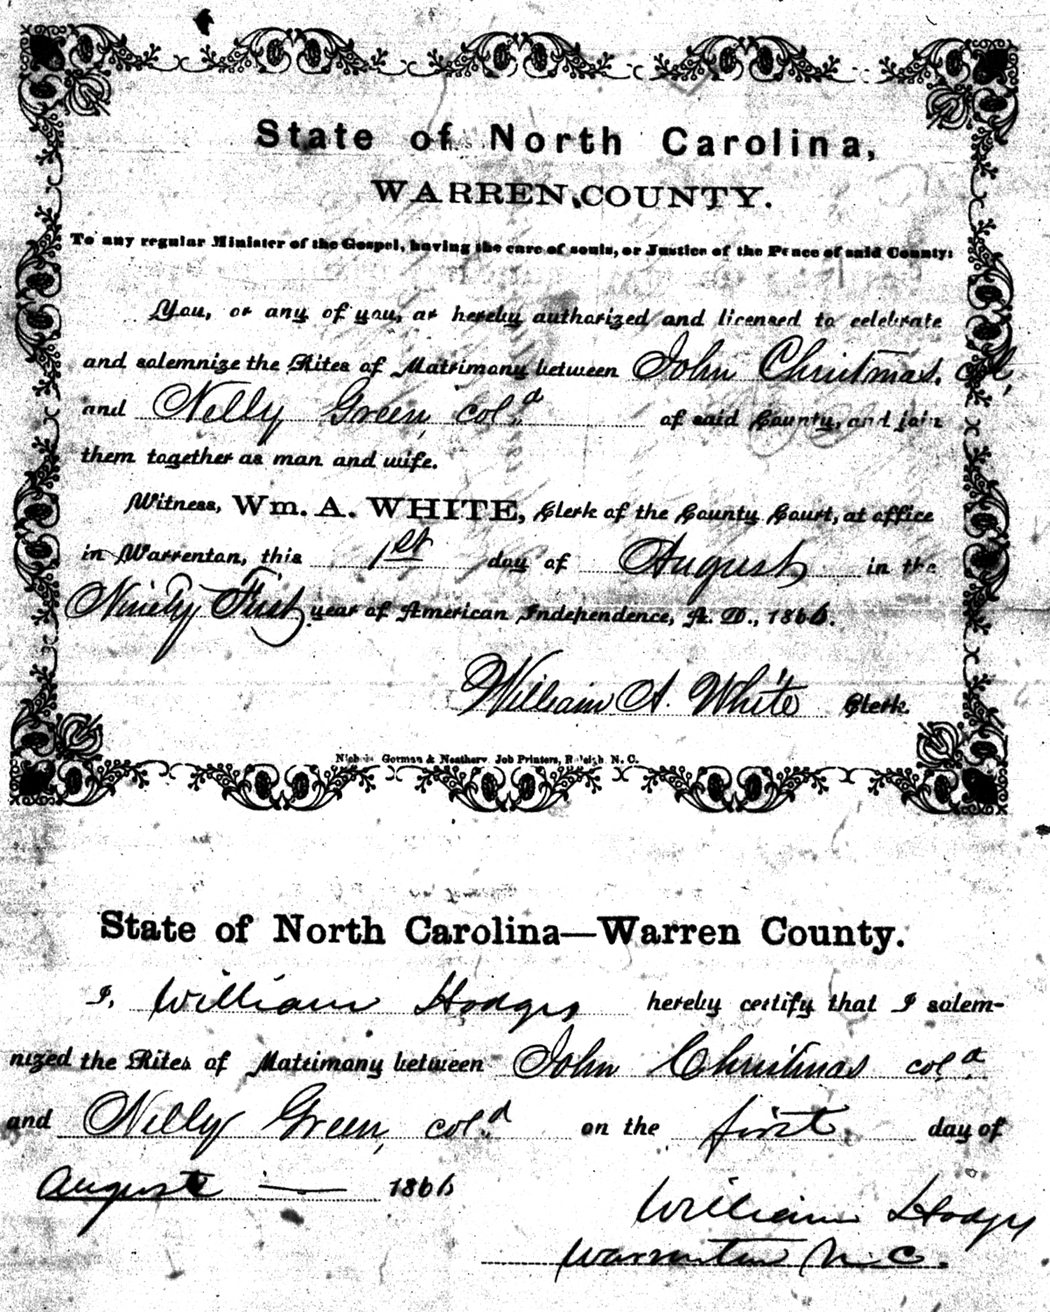 State of North Carolina,
WARREN COUNTY.
To any regular Minister of the Gospel, having the care of souls, or Justice of the Peace of said County:
You, or any of you, ar hereby authorized and licensed to celebrate
and solemnize the Rites of Matrimony between John Christmas, col,
and Nelly Green, col.d of said County, and join
them together as man and wife.
Witness, Wm. A. WHITE, Clerk of the County Court, at office
in Warrenton, this 1st day of August in the
Ninety First year of American Independence, A. D., 1866.
William A. White Clerk.
Gorman & Neathery Job Printers, Raleigh N. C.
State of North Carolina—Warren County.
I, William Hodges hereby certify that I solem-
nized the Rites of Matrimony between John Christmas col.d
and Nelly Green, col.d on the first day of
August 1866
William Hodges
Warrenton N. C.